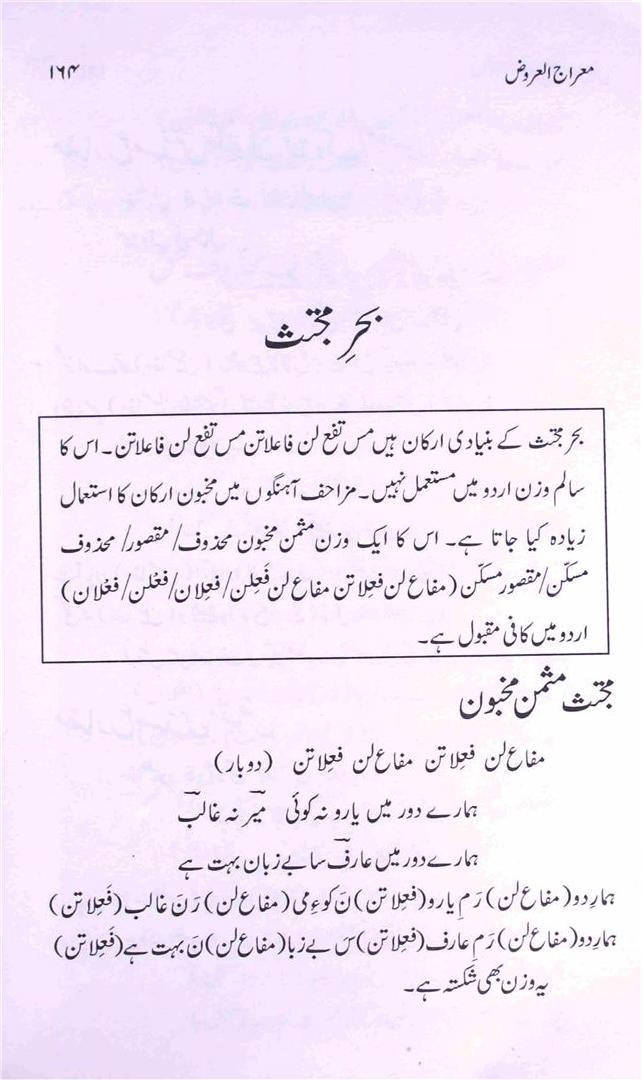 معراج العروض
۱۶۴
بحرِ مجتث
بحر مجتث کے بنیادی ارکان ہیں مس تفع لن فاعلاتن مس تفع لن فاعلاتن۔ اس کا
سالم وزن اردو میں مستعمل نہیں۔ مزاحف آہنگوں میں مخبون ارکان کا استعمال
زیادہ کیا جاتا ہے۔ اس کا ایک وزن مثمن مخبون محذوف/ مقصور/ محذوف
مسکّن/ مقصور مسکّن (مفاع لن فعِلاتن مفاع لن فَعِلن/ فعِلان/ فعْلن/ فعْلان)
اردو میں کافی مقبول ہے۔
مجتث مثمن مخبون
مفاع لن فعِلاتن مفاع لن فعِلاتن (دوبار)
ہمارے دور میں یارو نہ کوئی میرؔ نہ غالبؔ
ہمارے دور میں عارفؔ سا بے زبان بہت ہے
ہمارِدو (مفاع لن) رَمِ یارو (فعِلاتن) نَ کوءِ می (مفاع لن) رَنَ غالب (فَعِلاتن)
ہمارِدو (مفاع لن) رَمِ عارف (فعِلاتن) سَ بے زبا (مفاع لن) نَ بہت ہے (فَعِلاتن)
یہ وزن بھی شکستہ ہے۔